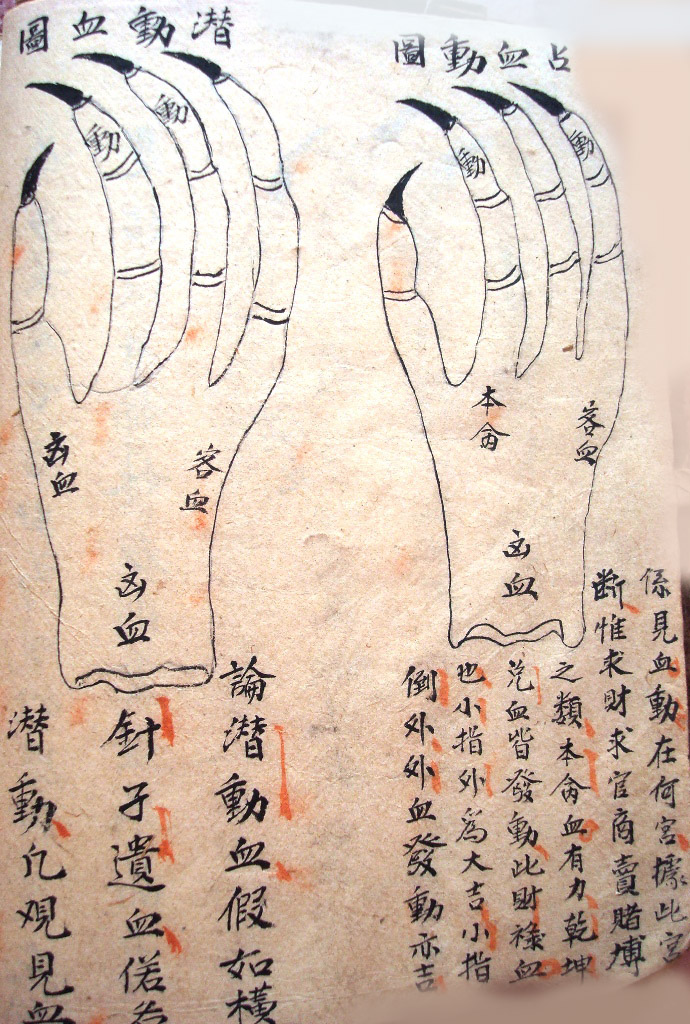 占血動圖
動
動
本命
客血
凶血
係見血動在何宮據此宮
斷惟求財求官商賣賭博
之類本命血有力乾坤
兌血皆發動此財祿血
也小指外為大吉小指
倒外外血發動亦吉
潛動血圖
動
動
凶血
客血
凶血
論潛動血假如橫
針子遺血偌為
潛動凡观見血